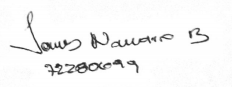 James Navarro B
72280699